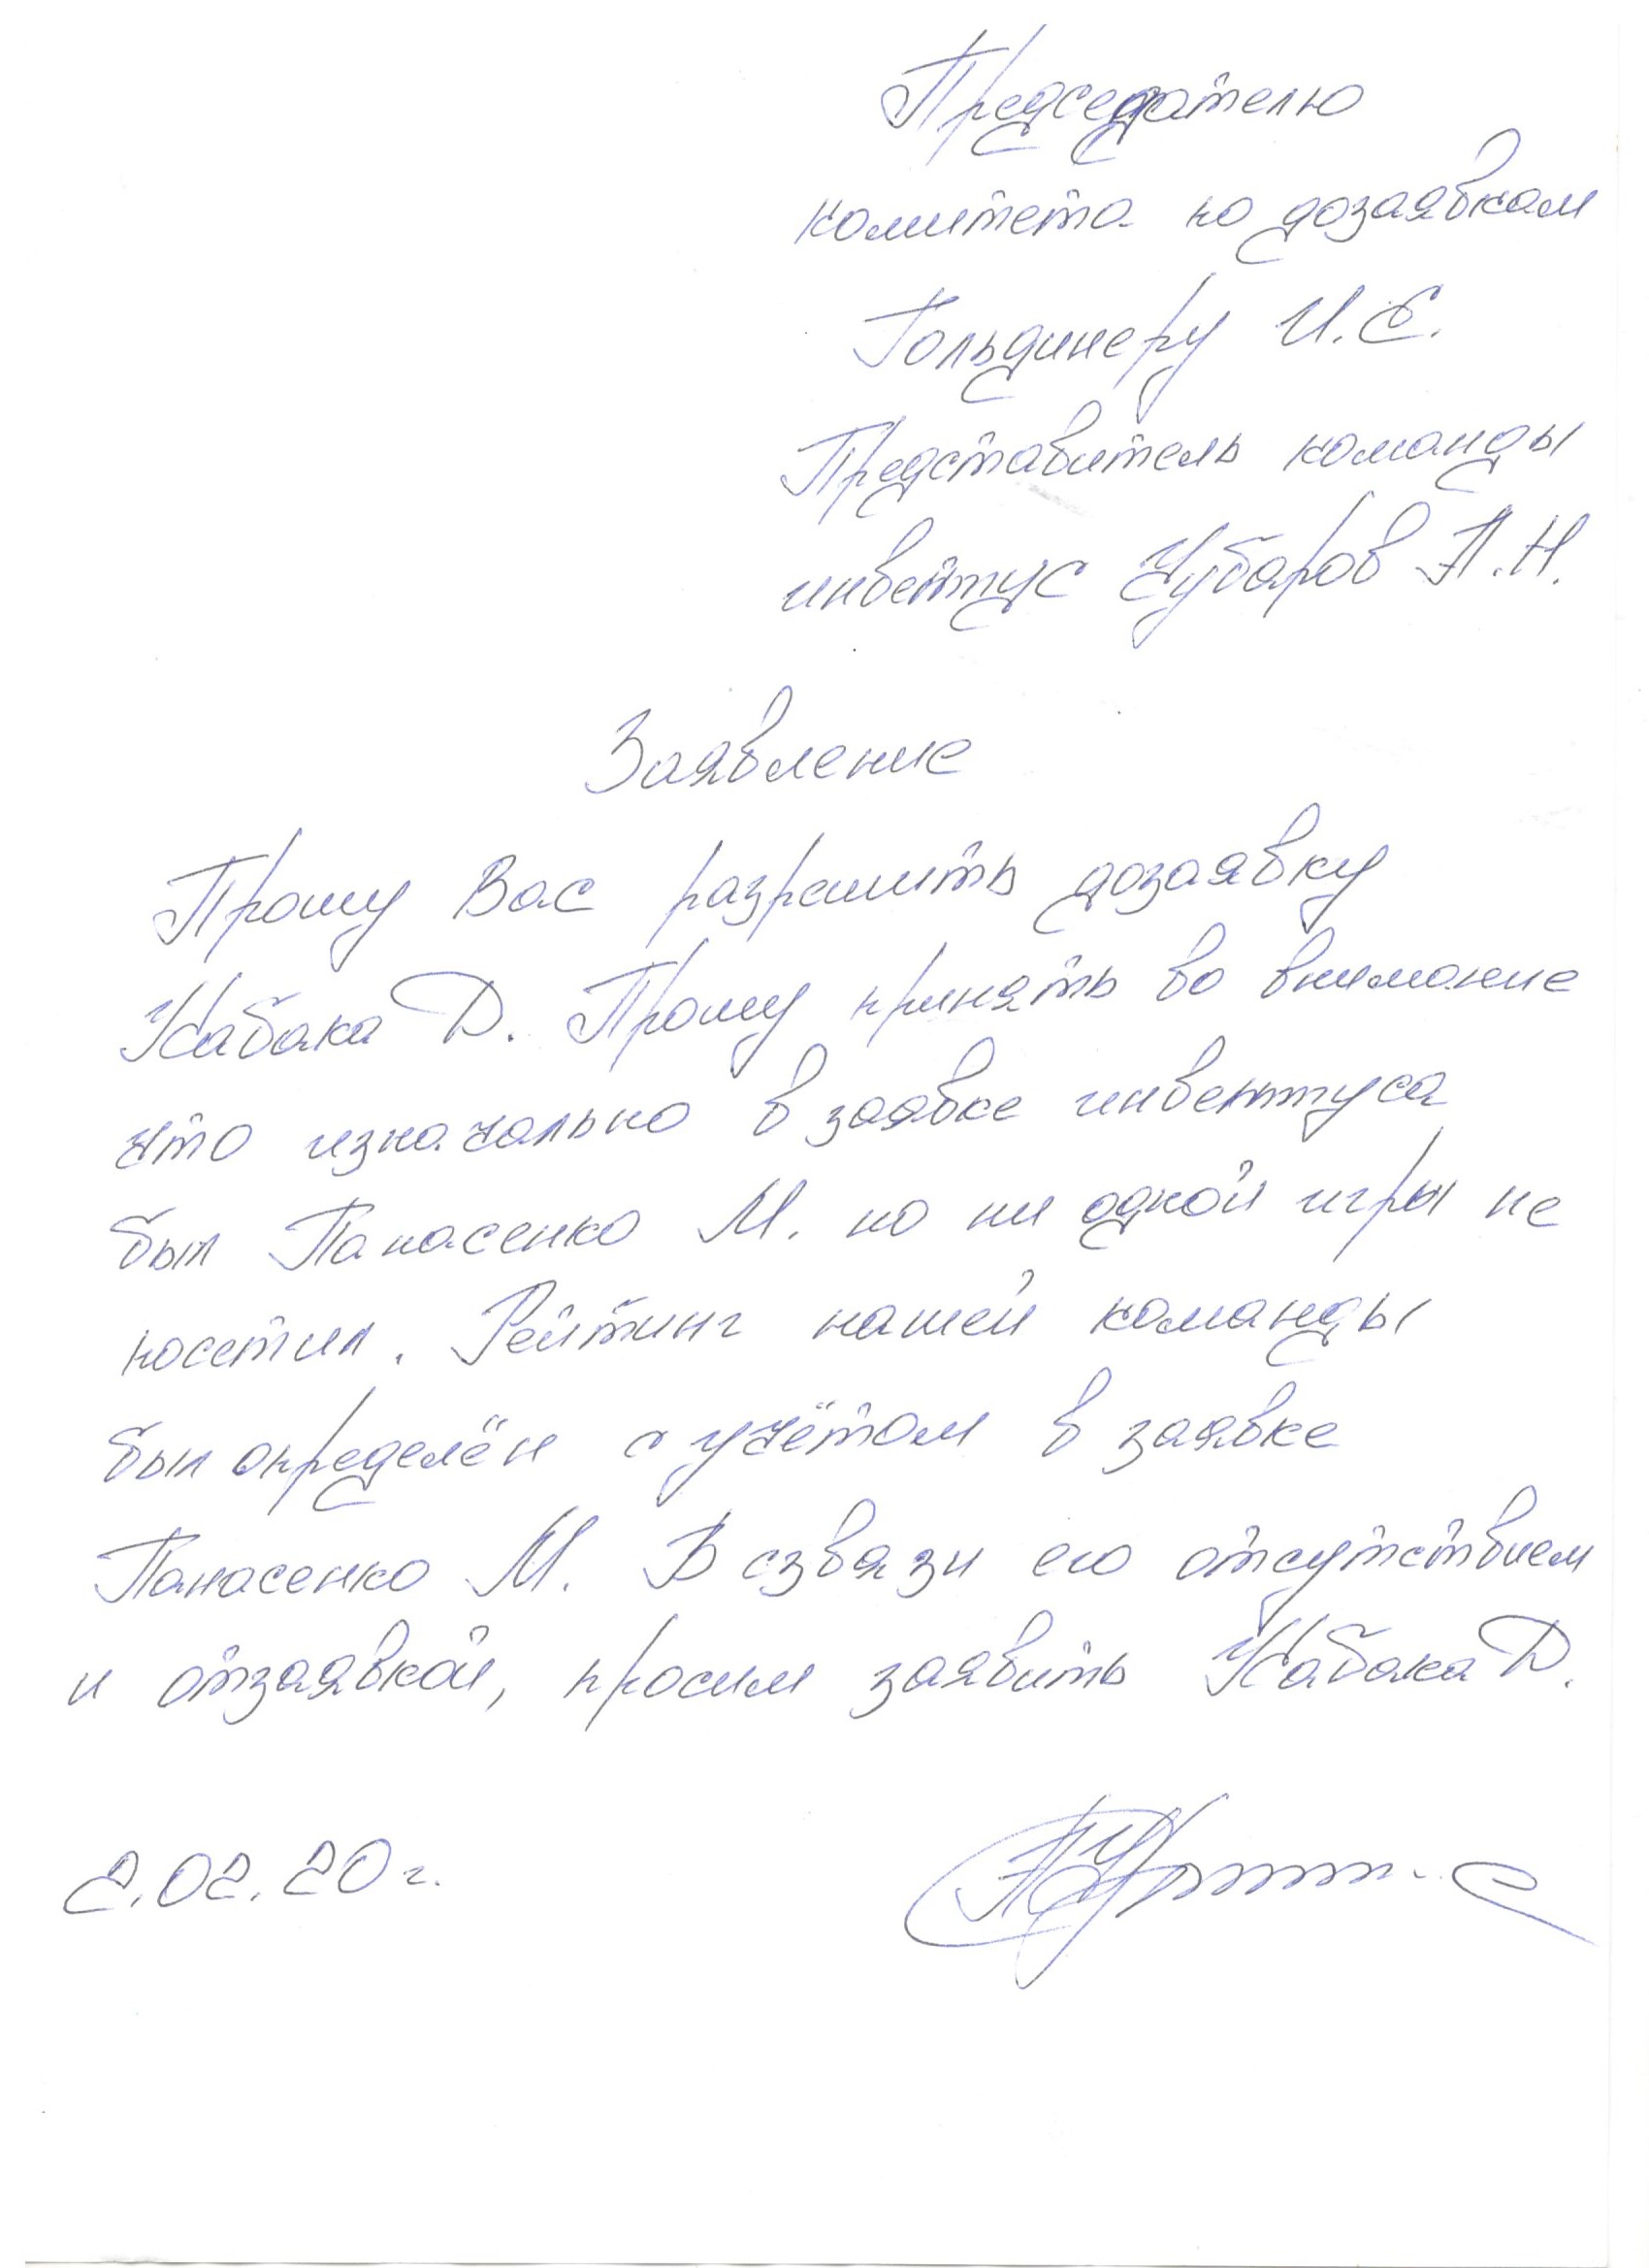 Председателю
комитета по дозаявкам
Гольдинеру И.Е.
Представитель команды
инвентус Чубаров П.Н.
Заявление
Прошу Вас разрешить дозаявку
Кабака Д. Прошу принять во внимание
что изначально в заявке инвентуса
был Панасенко М. но ни одной игры не
посетил. Рейтинг нашей команды
был определён с учётом в заявке
Панасенко М. В сзвязи его отсутствием
и отзаявкой, просим заявить Кабака Д.
2.02.20 г.